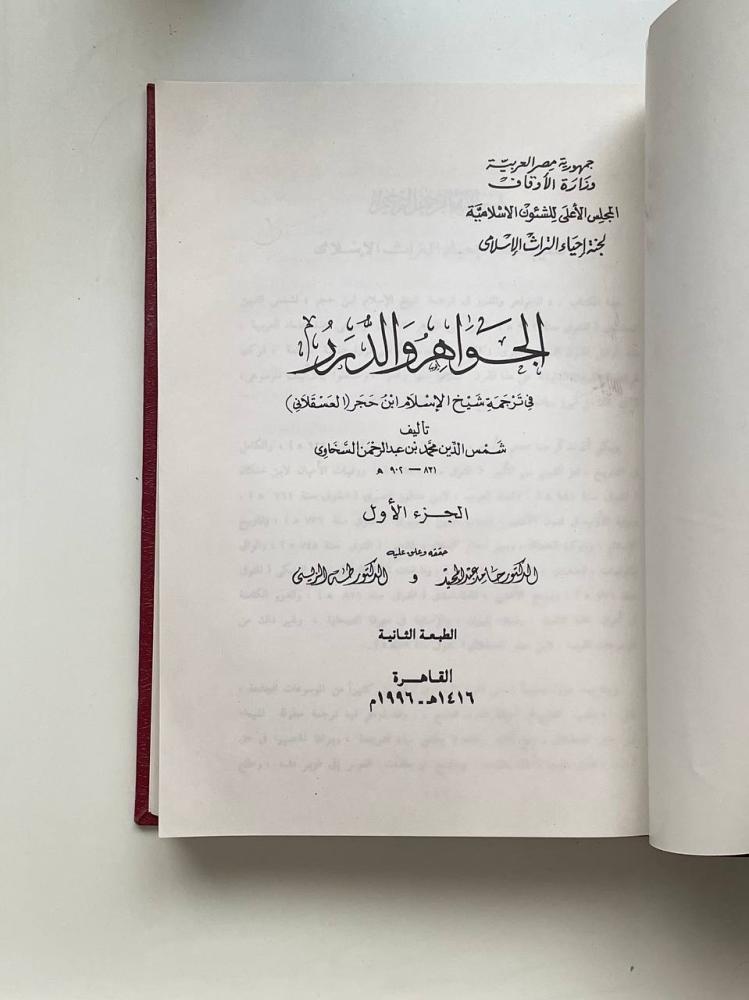 جمهورية مصر العربية
وزارة الأوقاف
المجلس الأعلى للشئون الاسلامية
لجنة إحياء التراث الإسلامى
الجَوَاهِرُ وَالدُّرَرُ
فى تَرْجَمَةِ شَيْخِ الإِسْلَامِ ابْنِ حَجَرٍ (العَسْقَلَانِى)
تأليف
شَمْسِ الدِّين مُحَمَّد بن عبد الرحمن السَّخَاوى
٨٣١ — ٩٠٢ هـ
الجـزء الأول
حققه وعلق عليه
الدكتور حامد عبد المجيد و الدكتور طه الزينى
الطبعة الثانية
القاهرة
١٤١٦هـ - ١٩٩٦م